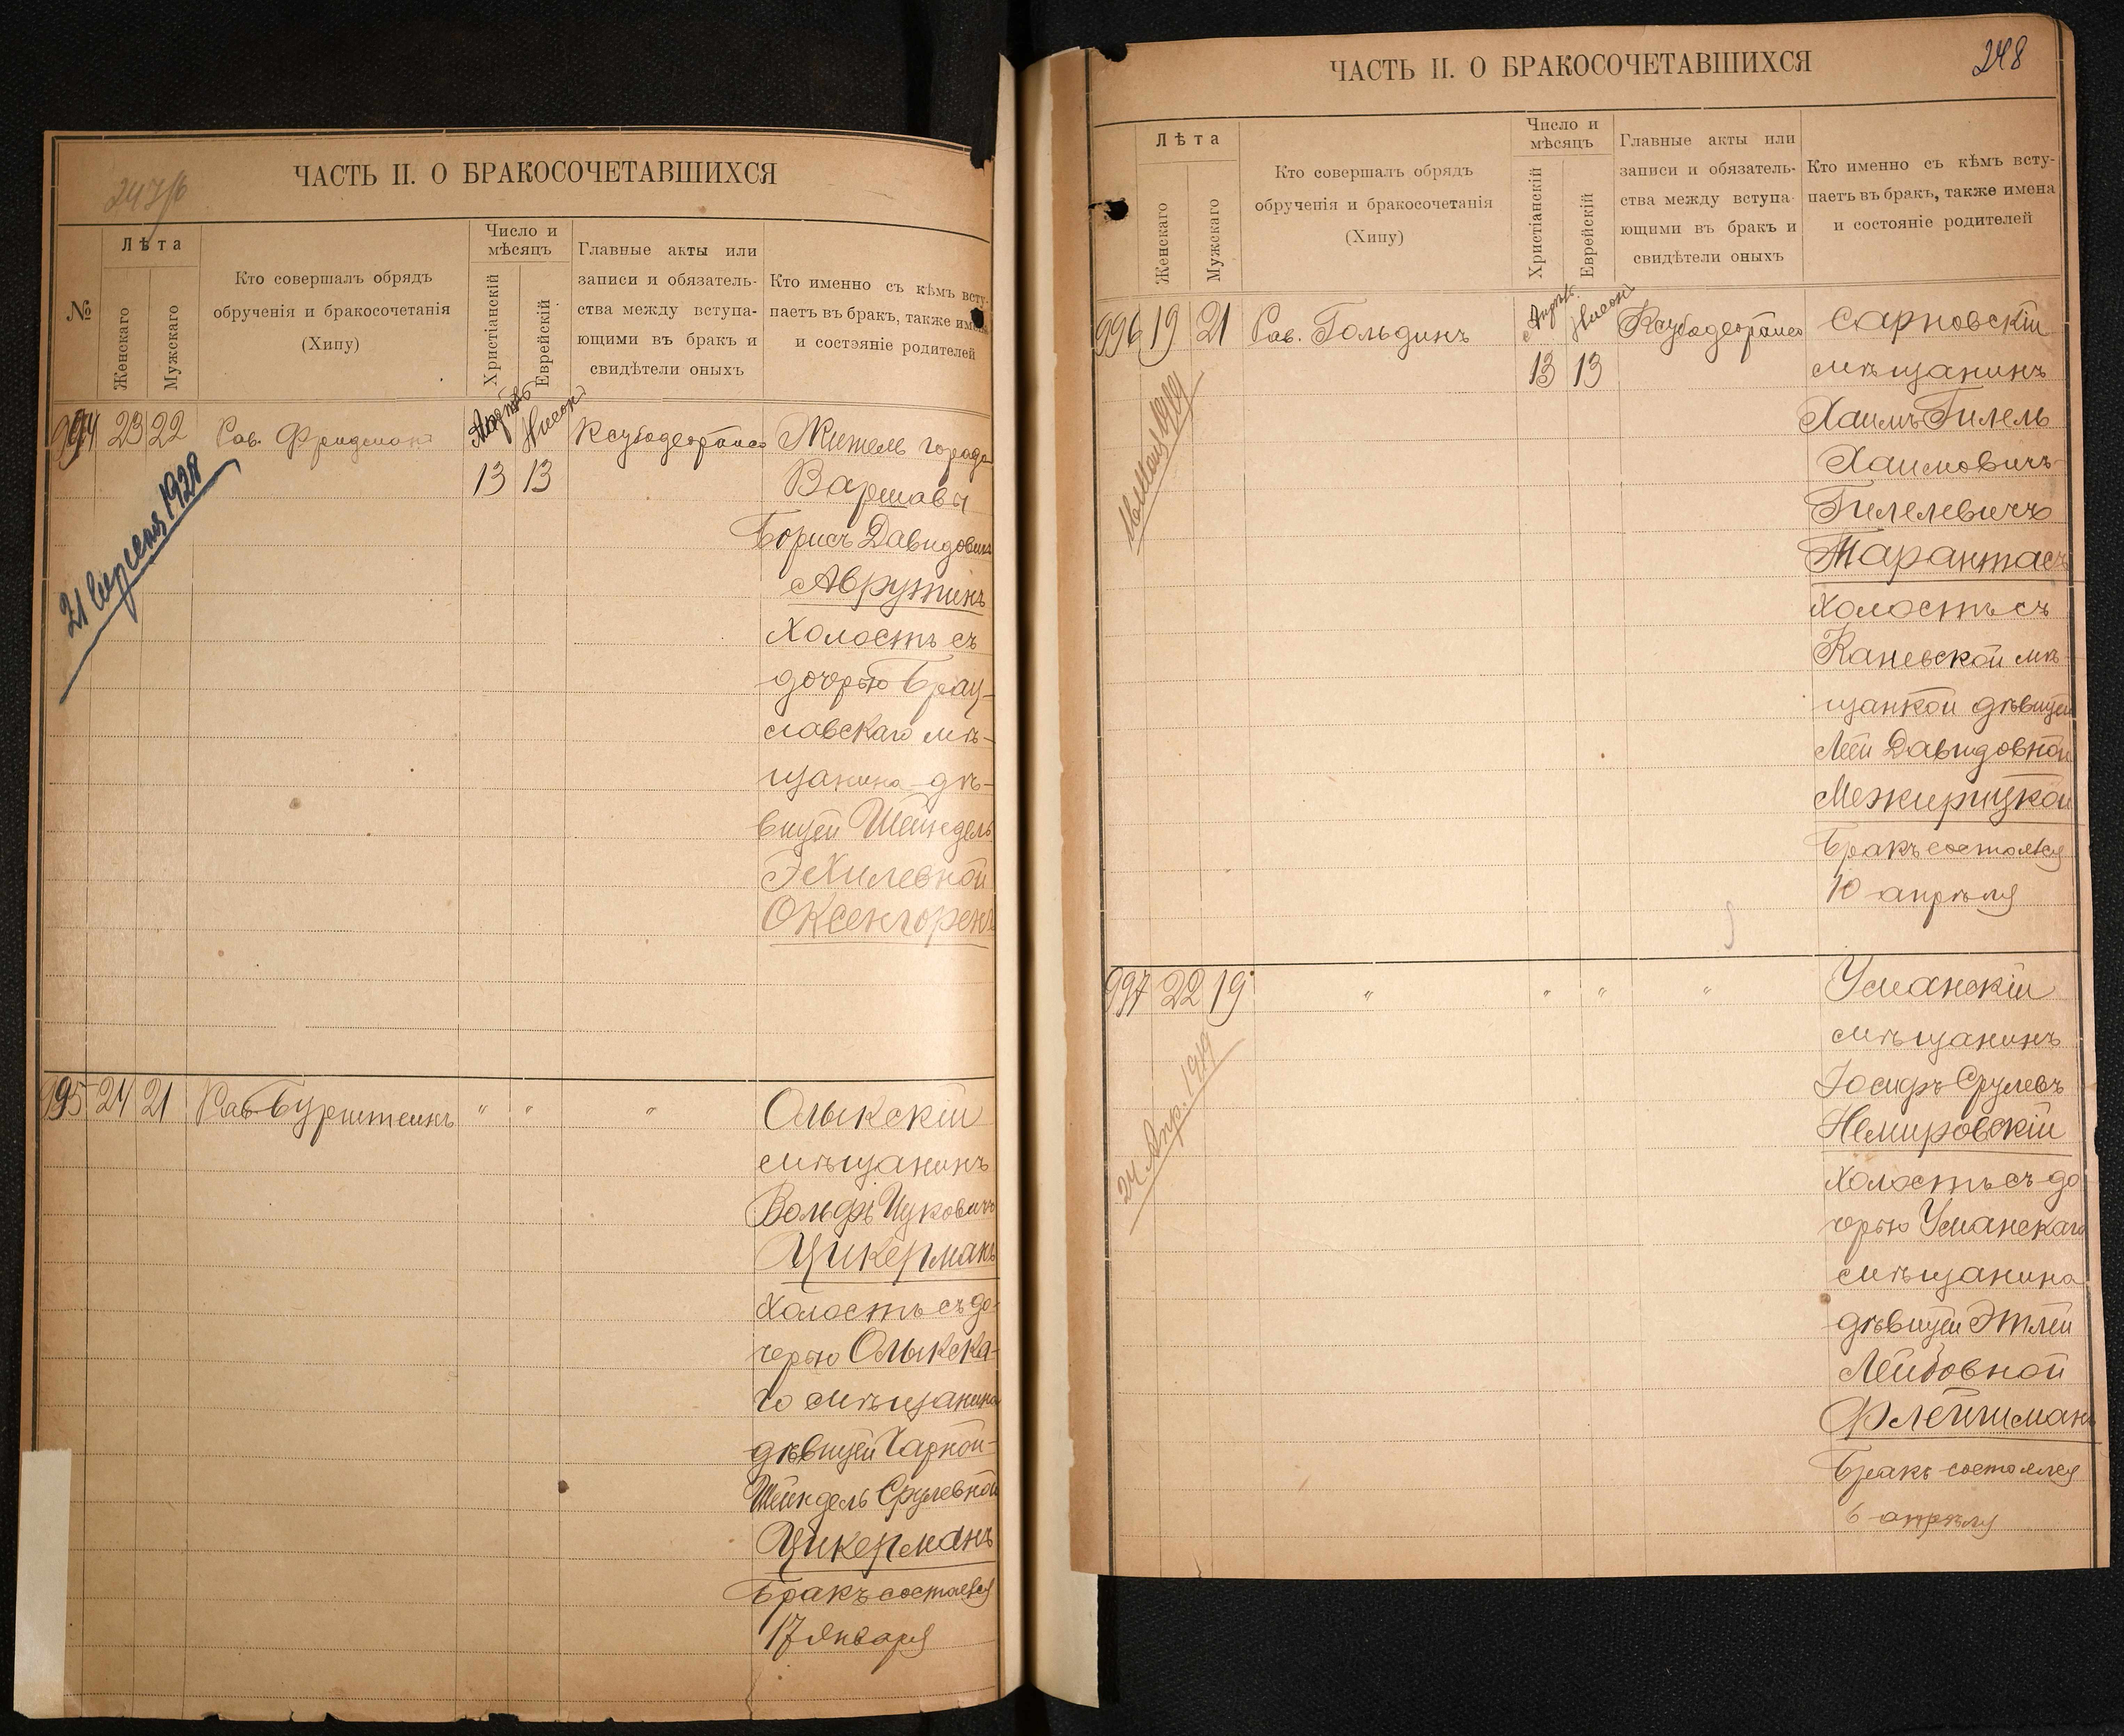 ЧАСТЬ II. О БРАКОСОЧЕТАВШИХСЯ
№
Лѣта
Женскаго
Мужскаго
Кто совершалъ обрядъ
обрученія и бракосочетанія
(Хипу)
Число и
мѣсяцъ
Христіанскій
Еврейскій
Главные акты или
записи и обязатель-
ства между вступа-
ющими въ бракъ и
свидѣтели оныхъ
Кто именно съ кѣмъ всту-
паетъ въ бракъ, также имена
и состояніе родителей
994 23 22 Рав. Фридманъ Апрѣль Нисонъ
13 13
Житель города
Варшавы
Борисъ Давидовичъ
Аврутинъ
Холостъ съ
дочерью Брац-
славскаго мѣ-
щанина дѣ-
вицей Шейндель
Эхилевной
Оксенгоренъ
21 1928
995 24 21 Рав Бурштейнъ " " "
Олыкскій
мѣщанинъ
Вольфъ Ицковичъ
Цикерманъ
Холостъ съ до-
черью Олыкска-
го мѣщанина
дѣвицей Чарной-
Шейндель Срулевной
Цикерманъ
Бракъ состоялся
17 января
ЧАСТЬ II. О БРАКОСОЧЕТАВШИХСЯ
248
Лѣта
Женскаго
Мужскаго
Кто совершалъ обрядъ
обрученія и бракосочетанія
(Хипу)
Число и
мѣсяцъ
Христіанскій
Еврейскій
Главные акты или
записи и обязатель-
ства между вступа-
ющими въ бракъ и
свидѣтели оныхъ
Кто именно съ кѣмъ всту-
паетъ въ бракъ, также имена
и состояніе родителей
996 19 21 Рав. Гольдинъ Апрѣль Нисонъ
13 13
Сарновскій
мѣщанинъ
Хаимъ Гилель
Хаимовичъ-
Гилелевичъ
Тарантасъ
Холостъ съ
Каневской мѣ-
щанкой дѣвицей
Леей Давидовной
Межирицкой
Бракъ состоялся
10 апрѣля
1919
997 22 19 " " " "
Уманскій
мѣщанинъ
Іосифъ Срулевъ
Немировскій
Холостъ съ до
черью Уманскаго
мѣщанина
дѣвицей Этлей
Лейбовной
Флейшманъ
Бракъ состоялся
6 апрѣля
24 Апр. 1919